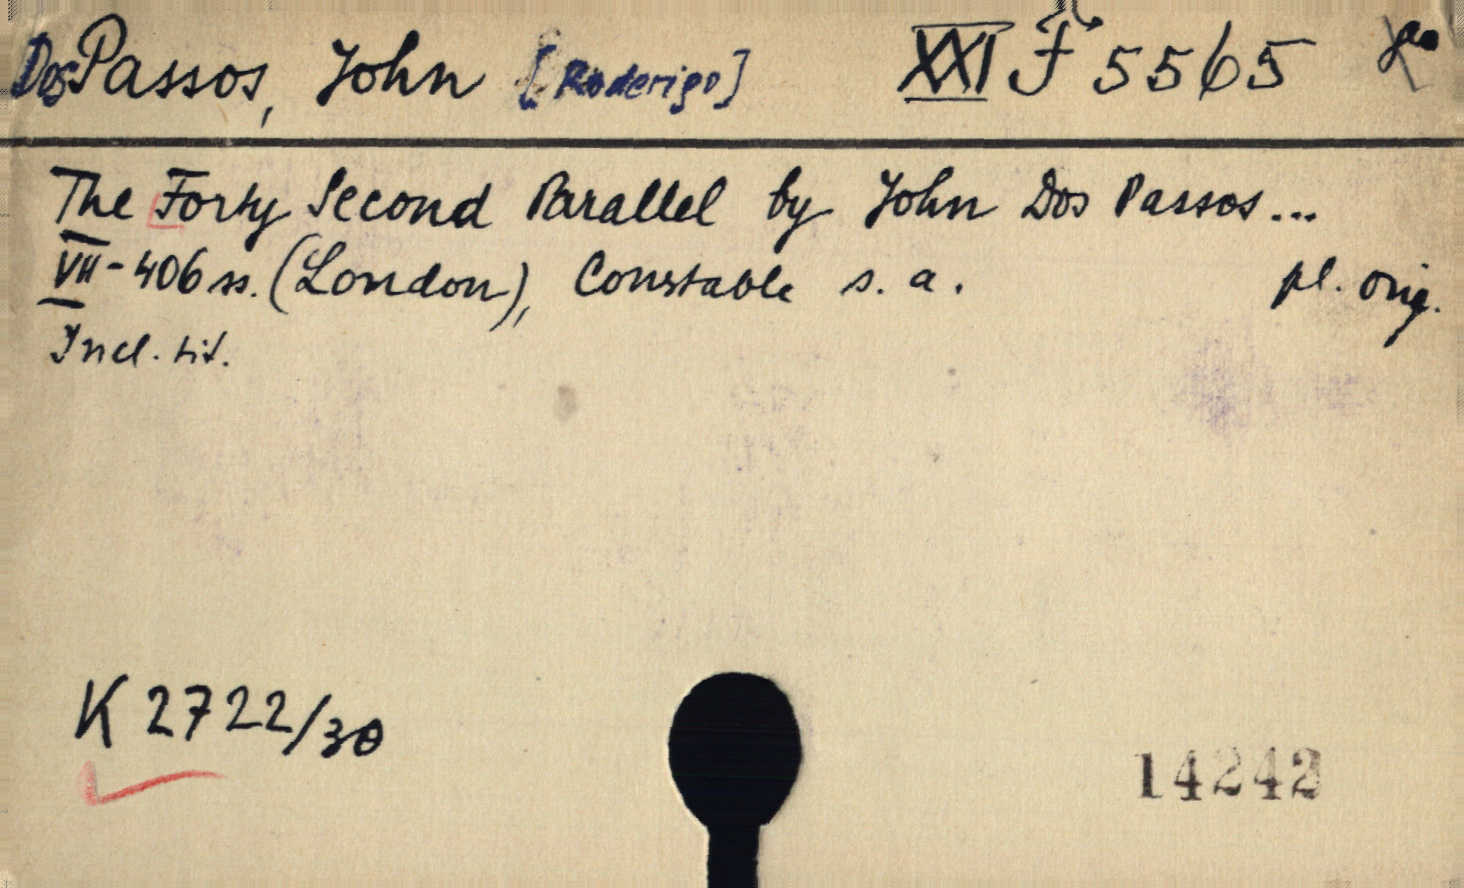 Dos Passos, John [Roderigo] XXI F 5565
The Forty Second Parallel by John Dos Passos...
VII-406 ss. (London), Constable s. a. pl. orig.
Incl. tit.
K 2722/30
14242